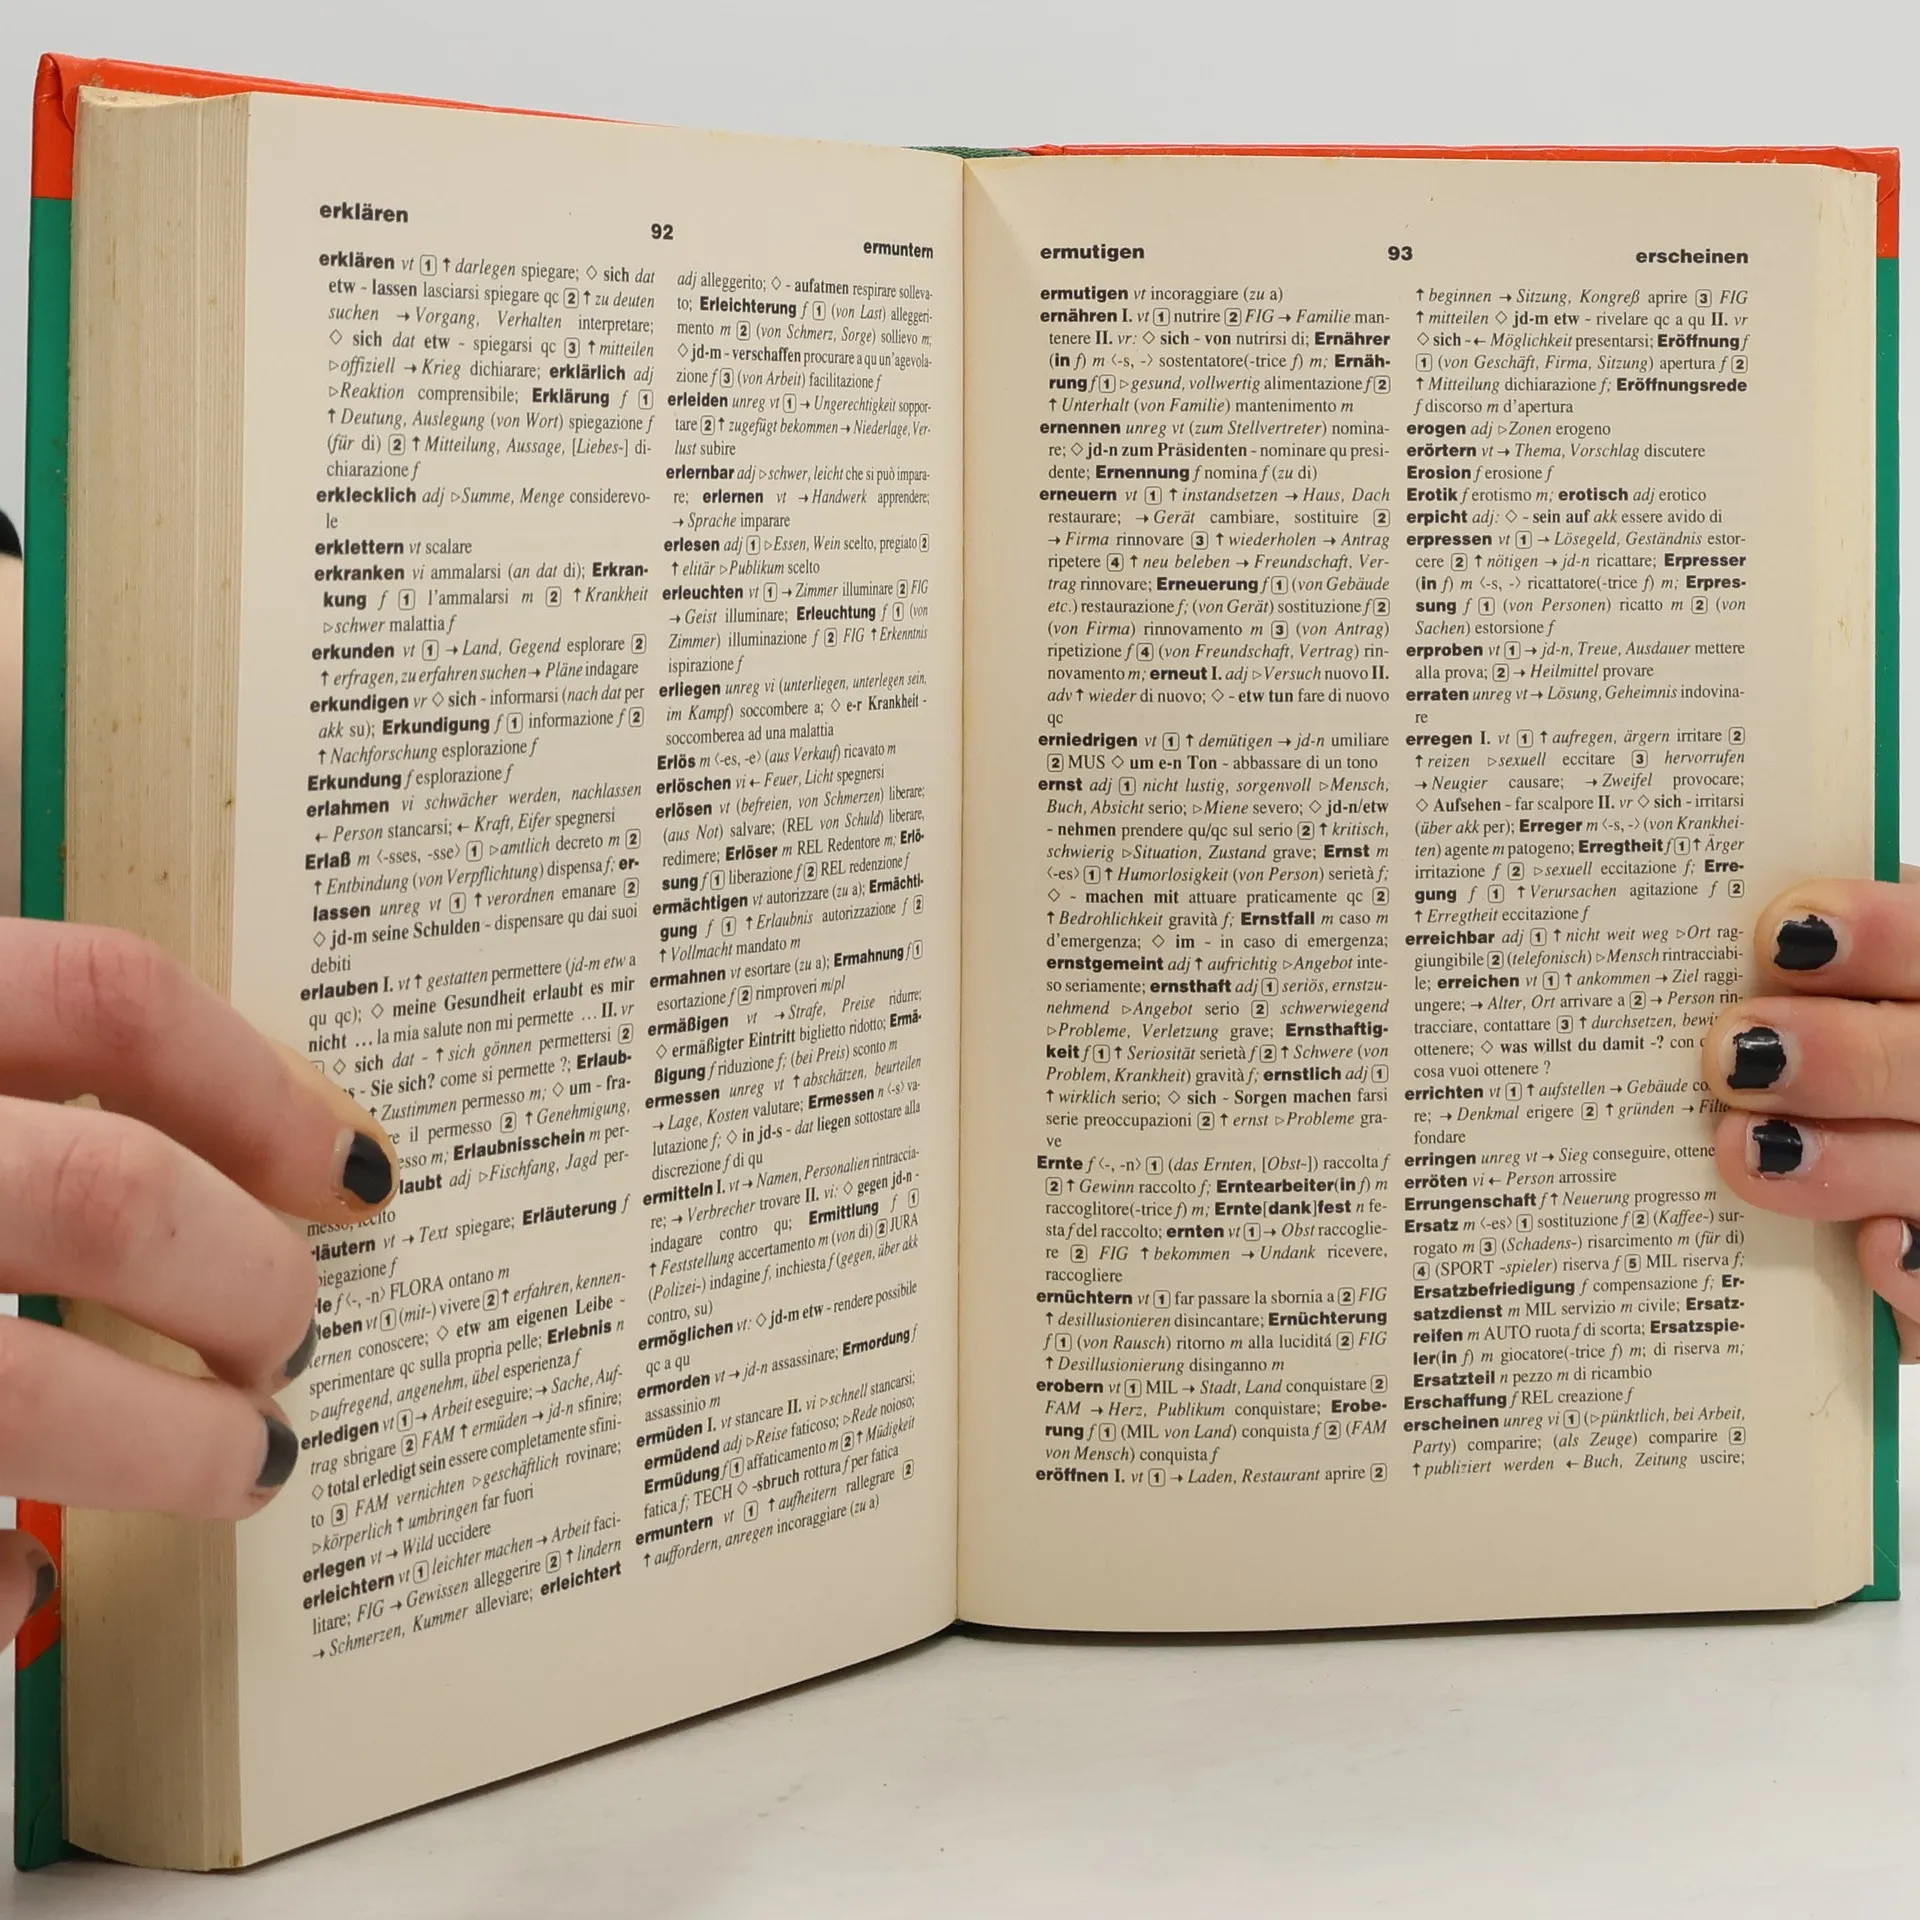 erklären
92
ermuntern
erklären vt 1 ↑ darlegen spiegare; ◇ sich dat
etw - lassen lasciarsi spiegare qc 2 ↑ zu deuten
suchen → Vorgang, Verhalten interpretare;
◇ sich dat etw - spiegarsi qc 3 ↑ mitteilen
▷offiziell → Krieg dichiarare; erklärlich adj
▷Reaktion comprensibile; Erklärung f 1
↑ Deutung, Auslegung (von Wort) spiegazione f
(für di) 2 ↑ Mitteilung, Aussage, [Liebes-] di-
chiarazione f
erklecklich adj ▷Summe, Menge considerevo-
le
erklettern vt scalare
erkranken vi ammalarsi (an dat di); Erkran-
kung f 1 l'ammalarsi m 2 ↑ Krankheit
▷schwer malattia f
erkunden vt 1 → Land, Gegend esplorare 2
↑ erfragen, zu erfahren suchen → Pläne indagare
erkundigen vr ◇ sich - informarsi (nach dat per
akk su); Erkundigung f 1 informazione f 2
↑ Nachforschung esplorazione f
Erkundung f esplorazione f
erlahmen vi schwächer werden, nachlassen
← Person stancarsi; ← Kraft, Eifer spegnersi
Erlaß m <-sses, -sse> 1 ▷amtlich decreto m 2
↑ Entbindung (von Verpflichtung) dispensa f; er-
lassen unreg vt 1 ↑ verordnen emanare 2
◇ jd-m seine Schulden - dispensare qu dai suoi
debiti
erlauben I. vt ↑ gestatten permettere (jd-m etw a
qu qc); ◇ meine Gesundheit erlaubt es mir
nicht ... la mia salute non mi permette ... II. vr
◇ sich dat - ↑ sich gönnen permettersi 2
- Sie sich? come si permette ?; Erlaub-
↑ Zustimmen permesso m; ◇ um - fra-
il permesso 2 ↑ Genehmigung,
m; Erlaubnisschein m per-
adj ▷Fischfang, Jagd per-
messo, lecito
vt → Text spiegare; Erläuterung f
f
f <-, -n> FLORA ontano m
vt 1 (mit-) vivere 2 ↑ erfahren, kennen-
lernen conoscere; ◇ etw am eigenen Leibe -
sperimentare qc sulla propria pelle; Erlebnis n
▷aufregend, angenehm, übel esperienza f
erledigen vt 1 → Arbeit eseguire; → Sache, Auf-
trag sbrigare 2 FAM ↑ ermüden → jd-n sfinire;
◇ total erledigt sein essere completamente sfini-
to 3 FAM vernichten ▷geschäftlich rovinare;
▷körperlich ↑ umbringen far fuori
erlegen vt → Wild uccidere
erleichtern vt 1 leichter machen → Arbeit faci-
litare; FIG → Gewissen alleggerire 2 ↑ lindern
→ Schmerzen, Kummer alleviare; erleichtert
adj alleggerito; ◇ - aufatmen respirare solleva-
to; Erleichterung f 1 (von Last) alleggeri-
mento m 2 (von Schmerz, Sorge) sollievo m;
◇ jd-m - verschaffen procurare a qu un'agevola-
zione f 3 (von Arbeit) facilitazione f
erleiden unreg vt 1 → Ungerechtigkeit soppor-
tare 2 ↑ zugefügt bekommen → Niederlage, Ver-
lust subire
erlernbar adj ▷schwer, leicht che si può impara-
re; erlernen vt → Handwerk apprendere;
→ Sprache imparare
erlesen adj 1 ▷Essen, Wein scelto, pregiato 2
↑ elitär ▷Publikum scelto
erleuchten vt 1 → Zimmer illuminare 2 FIG
→ Geist illuminare; Erleuchtung f 1 (von
Zimmer) illuminazione f 2 FIG ↑ Erkenntnis
ispirazione f
erliegen unreg vi (unterliegen, unterlegen sein,
im Kampf) soccombere a; ◇ e-r Krankheit -
soccomberea ad una malattia
Erlös m <-es, -e> (aus Verkauf) ricavato m
erlöschen vi ← Feuer, Licht spegnersi
erlösen vt (befreien, von Schmerzen) liberare;
(aus Not) salvare; (REL von Schuld) liberare,
redimere; Erlöser m REL Redentore m; Erlö-
sung f 1 liberazione f 2 REL redenzione f
ermächtigen vt autorizzare (zu a); Ermächti-
gung f 1 ↑ Erlaubnis autorizzazione f 2
↑ Vollmacht mandato m
ermahnen vt esortare (zu a); Ermahnung f 1
esortazione f 2 rimproveri m/pl
ermäßigen vt → Strafe, Preise ridurre;
◇ ermäßigter Eintritt biglietto ridotto; Ermä-
ßigung f riduzione f; (bei Preis) sconto m
ermessen unreg vt ↑ abschätzen, beurteilen
→ Lage, Kosten valutare; Ermessen n <-s> va-
lutazione f; ◇ in jd-s - dat liegen sottostare alla
discrezione f di qu
ermitteln I. vt → Namen, Personalien rintraccia-
re; → Verbrecher trovare II. vi: ◇ gegen jd-n -
indagare contro qu; Ermittlung f 1
↑ Feststellung accertamento m (von di) 2 JURA
(Polizei-) indagine f, inchiesta f (gegen, über akk
contro, su)
ermöglichen vt: ◇ jd-m etw - rendere possibile
qc a qu
ermorden vt → jd-n assassinare; Ermordung f
assassinio m
ermüden I. vt stancare II. vi ▷schnell stancarsi;
ermüdend adj ▷Reise faticoso; ▷Rede noioso;
Ermüdung f 1 affaticamento m 2 ↑ Müdigkeit
fatica f; TECH ◇ -sbruch rottura f per fatica
ermuntern vt 1 ↑ aufheitern rallegrare 2
↑ auffordern, anregen incoraggiare (zu a)
ermutigen
93
erscheinen
ermutigen vt incoraggiare (zu a)
ernähren I. vt 1 nutrire 2 FIG → Familie man-
tenere II. vr: ◇ sich - von nutrirsi di; Ernährer
(in f) m <-s, -> sostentatore(-trice f) m; Ernäh-
rung f 1 ▷gesund, vollwertig alimentazione f 2
↑ Unterhalt (von Familie) mantenimento m
ernennen unreg vt (zum Stellvertreter) nomina-
re; ◇ jd-n zum Präsidenten - nominare qu presi-
dente; Ernennung f nomina f (zu di)
erneuern vt 1 ↑ instandsetzen → Haus, Dach
restaurare; → Gerät cambiare, sostituire 2
→ Firma rinnovare 3 ↑ wiederholen → Antrag
ripetere 4 ↑ neu beleben → Freundschaft, Ver-
trag rinnovare; Erneuerung f 1 (von Gebäude
etc.) restaurazione f; (von Gerät) sostituzione f 2
(von Firma) rinnovamento m 3 (von Antrag)
ripetizione f 4 (von Freundschaft, Vertrag) rin-
novamento m; erneut I. adj ▷Versuch nuovo II.
adv ↑ wieder di nuovo; ◇ - etw tun fare di nuovo
qc
erniedrigen vt 1 ↑ demütigen → jd-n umiliare
2 MUS ◇ um e-n Ton - abbassare di un tono
ernst adj 1 nicht lustig, sorgenvoll ▷Mensch,
Buch, Absicht serio; ▷Miene severo; ◇ jd-n/etw
- nehmen prendere qu/qc sul serio 2 ↑ kritisch,
schwierig ▷Situation, Zustand grave; Ernst m
<-es> 1 ↑ Humorlosigkeit (von Person) serietà f;
◇ - machen mit attuare praticamente qc 2
↑ Bedrohlichkeit gravità f; Ernstfall m caso m
d'emergenza; ◇ im - in caso di emergenza;
ernstgemeint adj ↑ aufrichtig ▷Angebot inte-
so seriamente; ernsthaft adj 1 seriös, ernstzu-
nehmend ▷Angebot serio 2 schwerwiegend
▷Probleme, Verletzung grave; Ernsthaftig-
keit f 1 ↑ Seriosität serietà f 2 ↑ Schwere (von
Problem, Krankheit) gravità f; ernstlich adj 1
↑ wirklich serio; ◇ sich - Sorgen machen farsi
serie preoccupazioni 2 ↑ ernst ▷Probleme gra-
ve
Ernte f <-, -n> 1 (das Ernten, [Obst-]) raccolta f
2 ↑ Gewinn raccolto f; Erntearbeiter(in f) m
raccoglitore(-trice f) m; Ernte[dank]fest n fe-
sta f del raccolto; ernten vt 1 → Obst raccoglie-
re 2 FIG ↑ bekommen → Undank ricevere,
raccogliere
ernüchtern vt 1 far passare la sbornia a 2 FIG
↑ desillusionieren disincantare; Ernüchterung
f 1 (von Rausch) ritorno m alla luciditá 2 FIG
↑ Desillusionierung disinganno m
erobern vt 1 MIL → Stadt, Land conquistare 2
FAM → Herz, Publikum conquistare; Erobe-
rung f 1 (MIL von Land) conquista f 2 (FAM
von Mensch) conquista f
eröffnen I. vt 1 → Laden, Restaurant aprire 2
↑ beginnen → Sitzung, Kongreß aprire 3 FIG
↑ mitteilen ◇ jd-m etw - rivelare qc a qu II. vr
◇ sich - ← Möglichkeit presentarsi; Eröffnung f
1 (von Geschäft, Firma, Sitzung) apertura f 2
↑ Mitteilung dichiarazione f; Eröffnungsrede
f discorso m d'apertura
erogen adj ▷Zonen erogeno
erörtern vt → Thema, Vorschlag discutere
Erosion f erosione f
Erotik f erotismo m; erotisch adj erotico
erpicht adj: ◇ - sein auf akk essere avido di
erpressen vt 1 → Lösegeld, Geständnis estor-
cere 2 ↑ nötigen → jd-n ricattare; Erpresser
(in f) m <-s, -> ricattatore(-trice f) m; Erpres-
sung f 1 (von Personen) ricatto m 2 (von
Sachen) estorsione f
erproben vt 1 → jd-n, Treue, Ausdauer mettere
alla prova; 2 → Heilmittel provare
erraten unreg vt → Lösung, Geheimnis indovina-
re
erregen I. vt 1 ↑ aufregen, ärgern irritare 2
↑ reizen ▷sexuell eccitare 3 hervorrufen
→ Neugier causare; → Zweifel provocare;
◇ Aufsehen - far scalpore II. vr ◇ sich - irritarsi
(über akk per); Erreger m <-s, -> (von Krankhei-
ten) agente m patogeno; Erregtheit f 1 ↑ Ärger
irritazione f 2 ▷sexuell eccitazione f; Erre-
gung f 1 ↑ Verursachen agitazione f 2
↑ Erregtheit eccitazione f
erreichbar adj 1 ↑ nicht weit weg ▷Ort rag-
giungibile 2 (telefonisch) ▷Mensch rintracciabi-
le; erreichen vt 1 ↑ ankommen → Ziel raggi-
ungere; → Alter, Ort arrivare a 2 → Person rin-
tracciare, contattare 3 ↑ durchsetzen,
ottenere; ◇ was willst du damit -? con
cosa vuoi ottenere ?
errichten vt 1 ↑ aufstellen → Gebäude
re; → Denkmal erigere 2 ↑ gründen →
fondare
erringen unreg vt → Sieg conseguire,
erröten vi ← Person arrossire
Errungenschaft f ↑ Neuerung progresso m
Ersatz m <-es> 1 sostituzione f 2 (Kaffee-) sur-
rogato m 3 (Schadens-) risarcimento m (für di)
4 (SPORT -spieler) riserva f 5 MIL riserva f;
Ersatzbefriedigung f compensazione f; Er-
satzdienst m MIL servizio m civile; Ersatz-
reifen m AUTO ruota f di scorta; Ersatzspie-
ler(in f) m giocatore(-trice f) m; di riserva m;
Ersatzteil n pezzo m di ricambio
Erschaffung f REL creazione f
erscheinen unreg vi 1 (▷pünktlich, bei Arbeit,
Party) comparire; (als Zeuge) comparire 2
↑ publiziert werden ← Buch, Zeitung uscire;